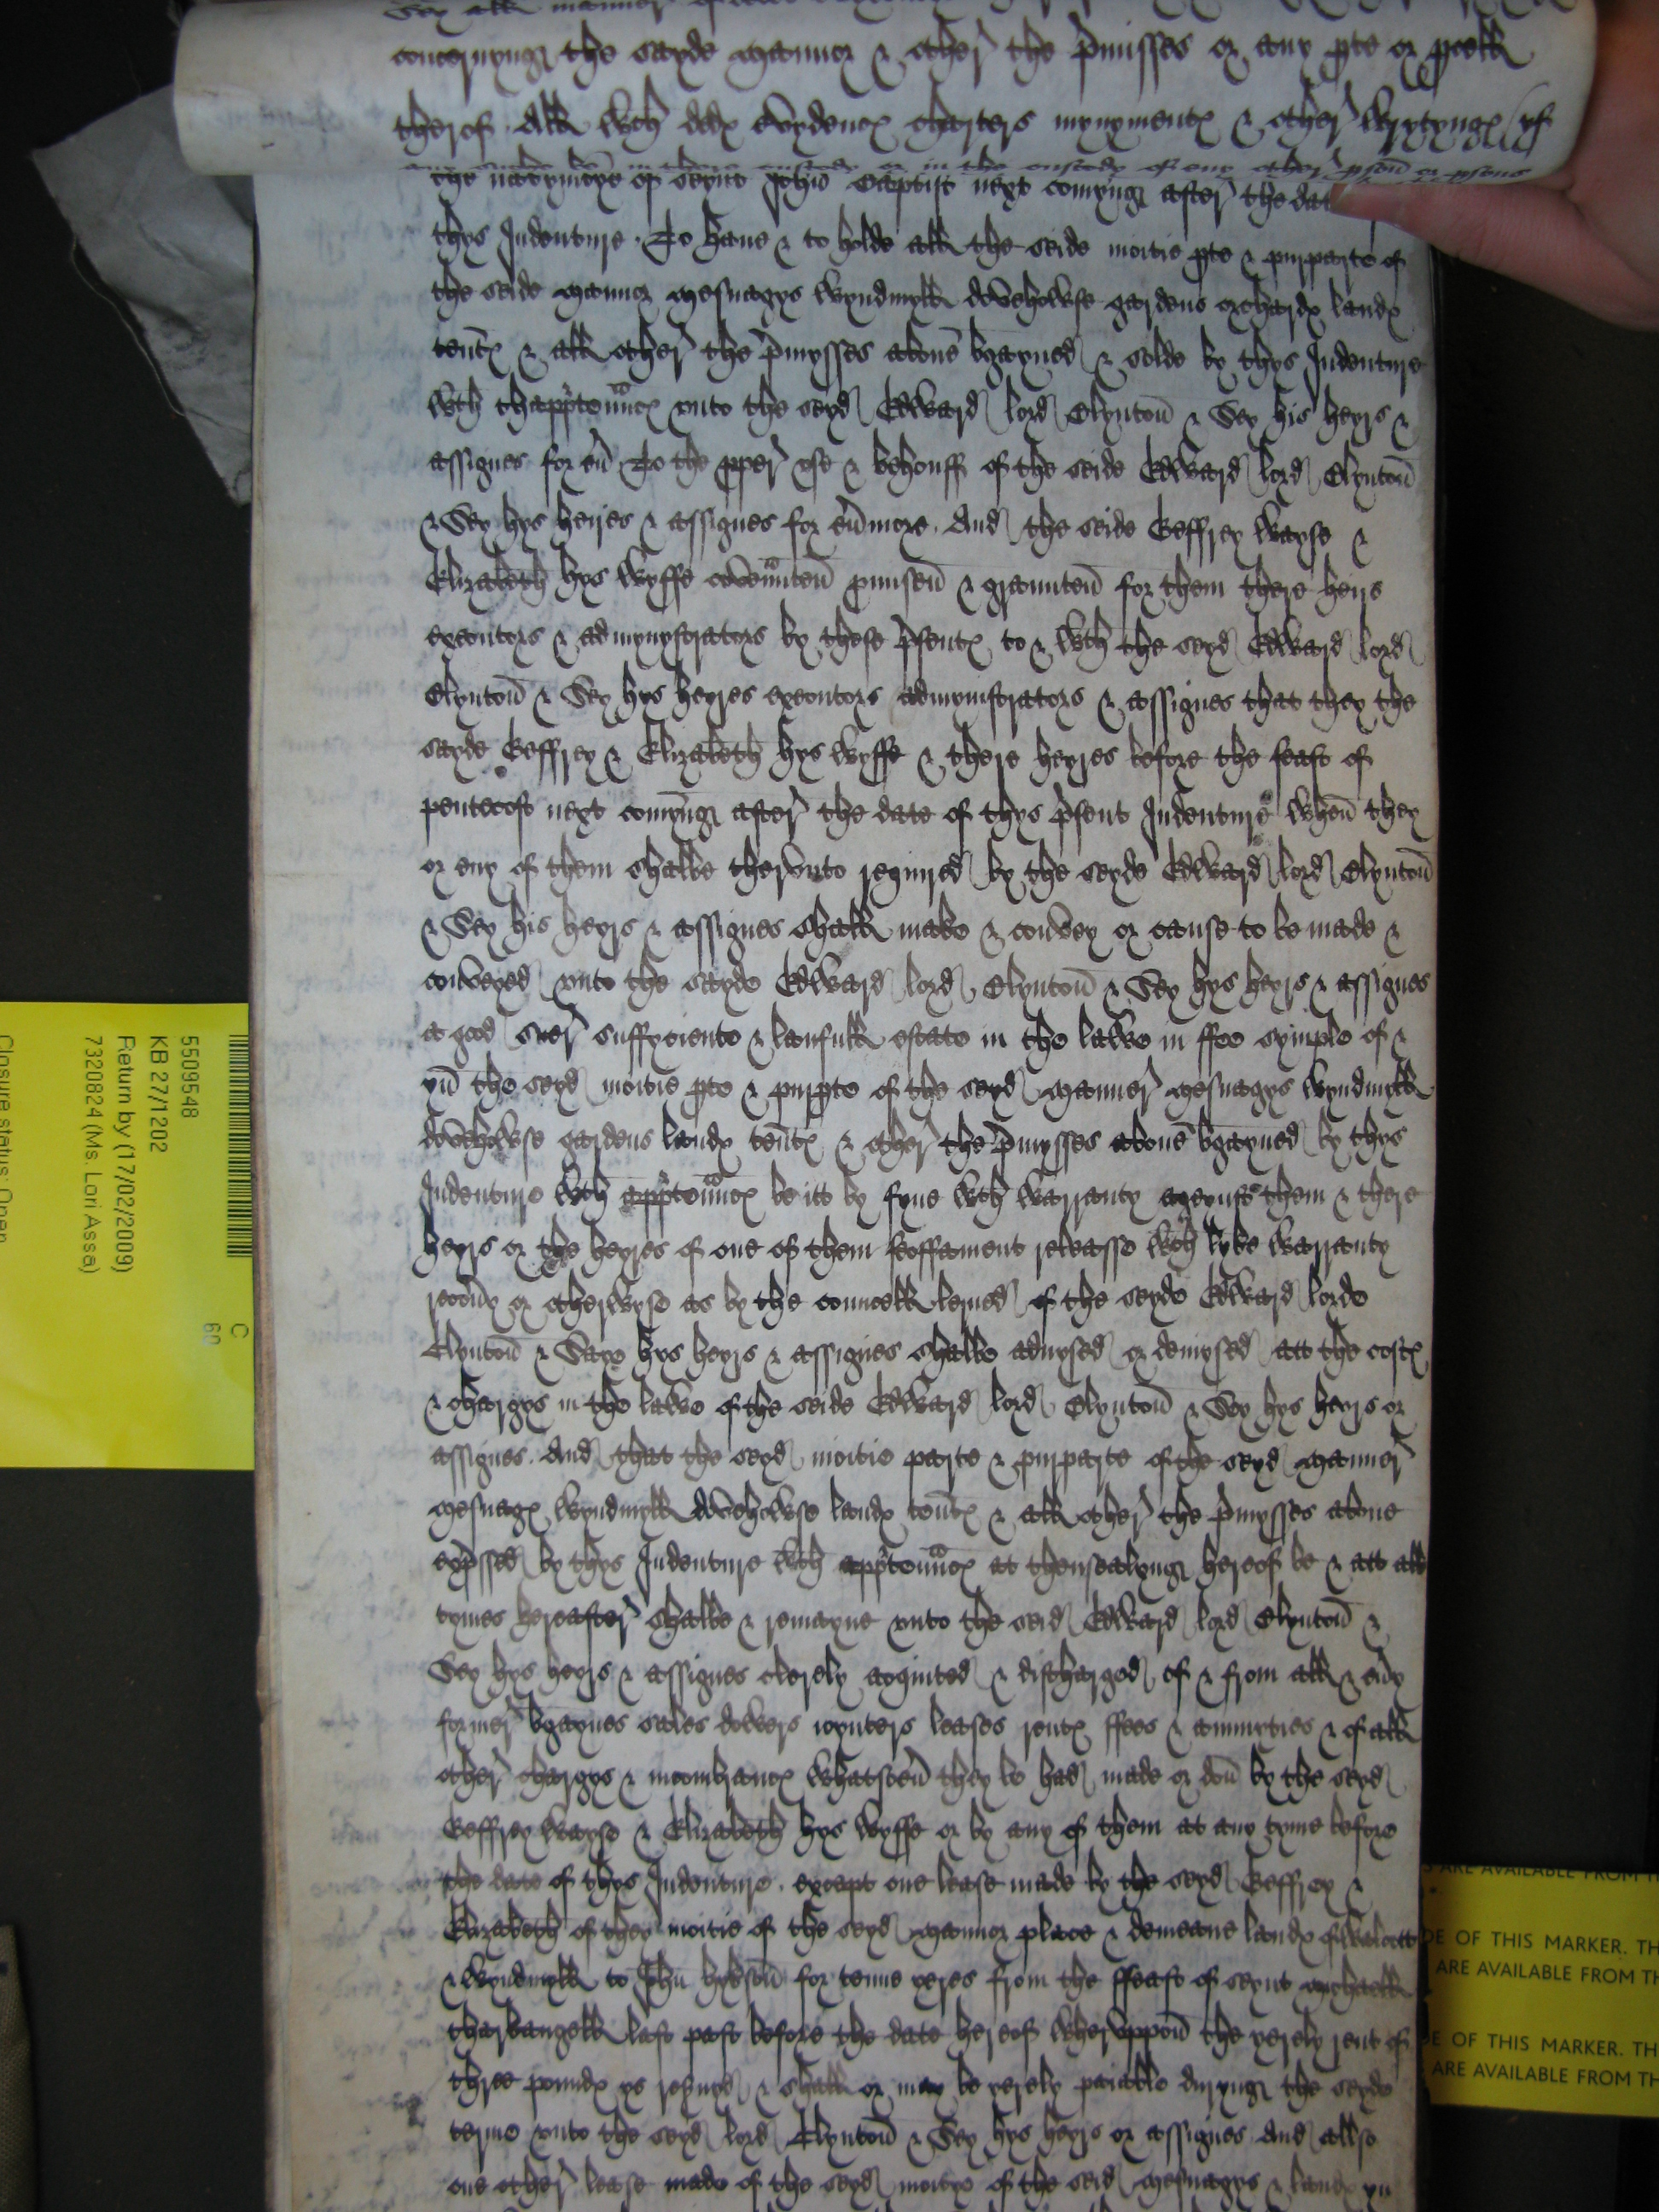 Sey all manner of
concernyng the sayde Mannor & other the p'misses or any pte or pcell
therof All wth dedx evydencx charters mynymentx & other wrytyngx yf
any suche be in there custody or in the custody of any other pson or psons
the natyvytye of seynt John Baptist next comyng after the dat
thys Indenture. To have & to holde all the seide moitie pte & purparte of
the seide mannor mesuagys wyndmyll dovehowse gardens orchardx landx
tentx & all other the p'mysses above bgayned & solde by thys Indenture
wth thapp'tennncx unto the seyd Edward lord Clynton & Sey his heyrs &
assignes for ev' To the pper use & behouff of the seide Edward lord Clynton
& Sey hys heires & assignes for ev'more. And the seide Geffrey Wayse &
Elizabeth hys wyffe covennten pmisen & graunten for them there heirs
executors & admynystrators by these p'sentx to & wth the seyd Edward lord
Clynton & Sey hys heyres executors admynistrators & assignes that they the
sayde Geffrey & Elizabeth hys wyffe & there heyres before the feast of
pentecost next comyng after the date of thys p'sent Indenture when they
or eny of them shalbe therunto requyred by the seyde Edward lord Clynton
& Sey his heyrs & assignes shall make & convey or cause to be made &
conveyed unto the sayde Edward lord Clynton & Sey hys heyrs & assignes
a good suer suffyciente & laufull estate in the lawe in ffee symple of &
yn the seyd moitie pte & purpte of the seyd manner mesuagys wyndmyll
dovehowse gardens landx tentx & other the p'mysses above bgayned by thys
Indenture wth app'tennncx be itt by fyne wth warranty ageynst them & there
heyrs or the heyres of one of them feoffament releasse wth lyke warranty
recov'y or otherwyse as by the councell lerned of the seyde Edward lorde
Clynton & Saye hys heyrs & assignes shalbe advysed or devysed att the costx
& chargys in the lawe of the seide Edward lord Clynton & Sey hys heyrs or
assignes. And that the seyd moitie parte & purparte of the seyd manner
mesuagx wyndmyll dovehowse landx tentx & all other the p'mysses above
exp'ssed by thys Indenture wth app'tennncx at thensealyng hereof be & att all
tymes hereafter shalbe & remayne unto the seid Edward lord Clynton &
Sey hys heyrs & assignes clerely acquited & discharged of & from all & ev'y
former bgaynes sales dowers ioynters leases rentx ffees & annuyties & of all
other chargys & incombrancx whatsoev' they be had made or don by the seyd
Geffrey Wayse & Elizabeth hys wyffe or by any of them at any tyme before
the date of thys Indenture. except one lease made by the seyd Geffrey &
Elizabeth of they moitie of the seyd mannor place & demeane landx of Walcott
& wyndmyll to John hykson for tenne yeres from the ffeast of seynt mychaell
tharkangell last past before the date hereof wheruppon the yerely rent of
three poundx ys res'ved & shall or may be yerely paiable duryng the seyde
terme unto the seyd lord Clynton & Sey hys heyrs or assignes And allso
one other lease made of the seyd moitye of the seid mesuagys & landx yn
5509548
KB 27/1202
Return by (17/02/2009)
7320824 (Ms. Lori Assa)
Closure status: Open
C
60
S ARE AVAILABLE FROM TH
DE OF THIS MARKER. TH
ARE AVAILABLE FROM TH
DE OF THIS MARKER. TH
ARE AVAILABLE FROM TH